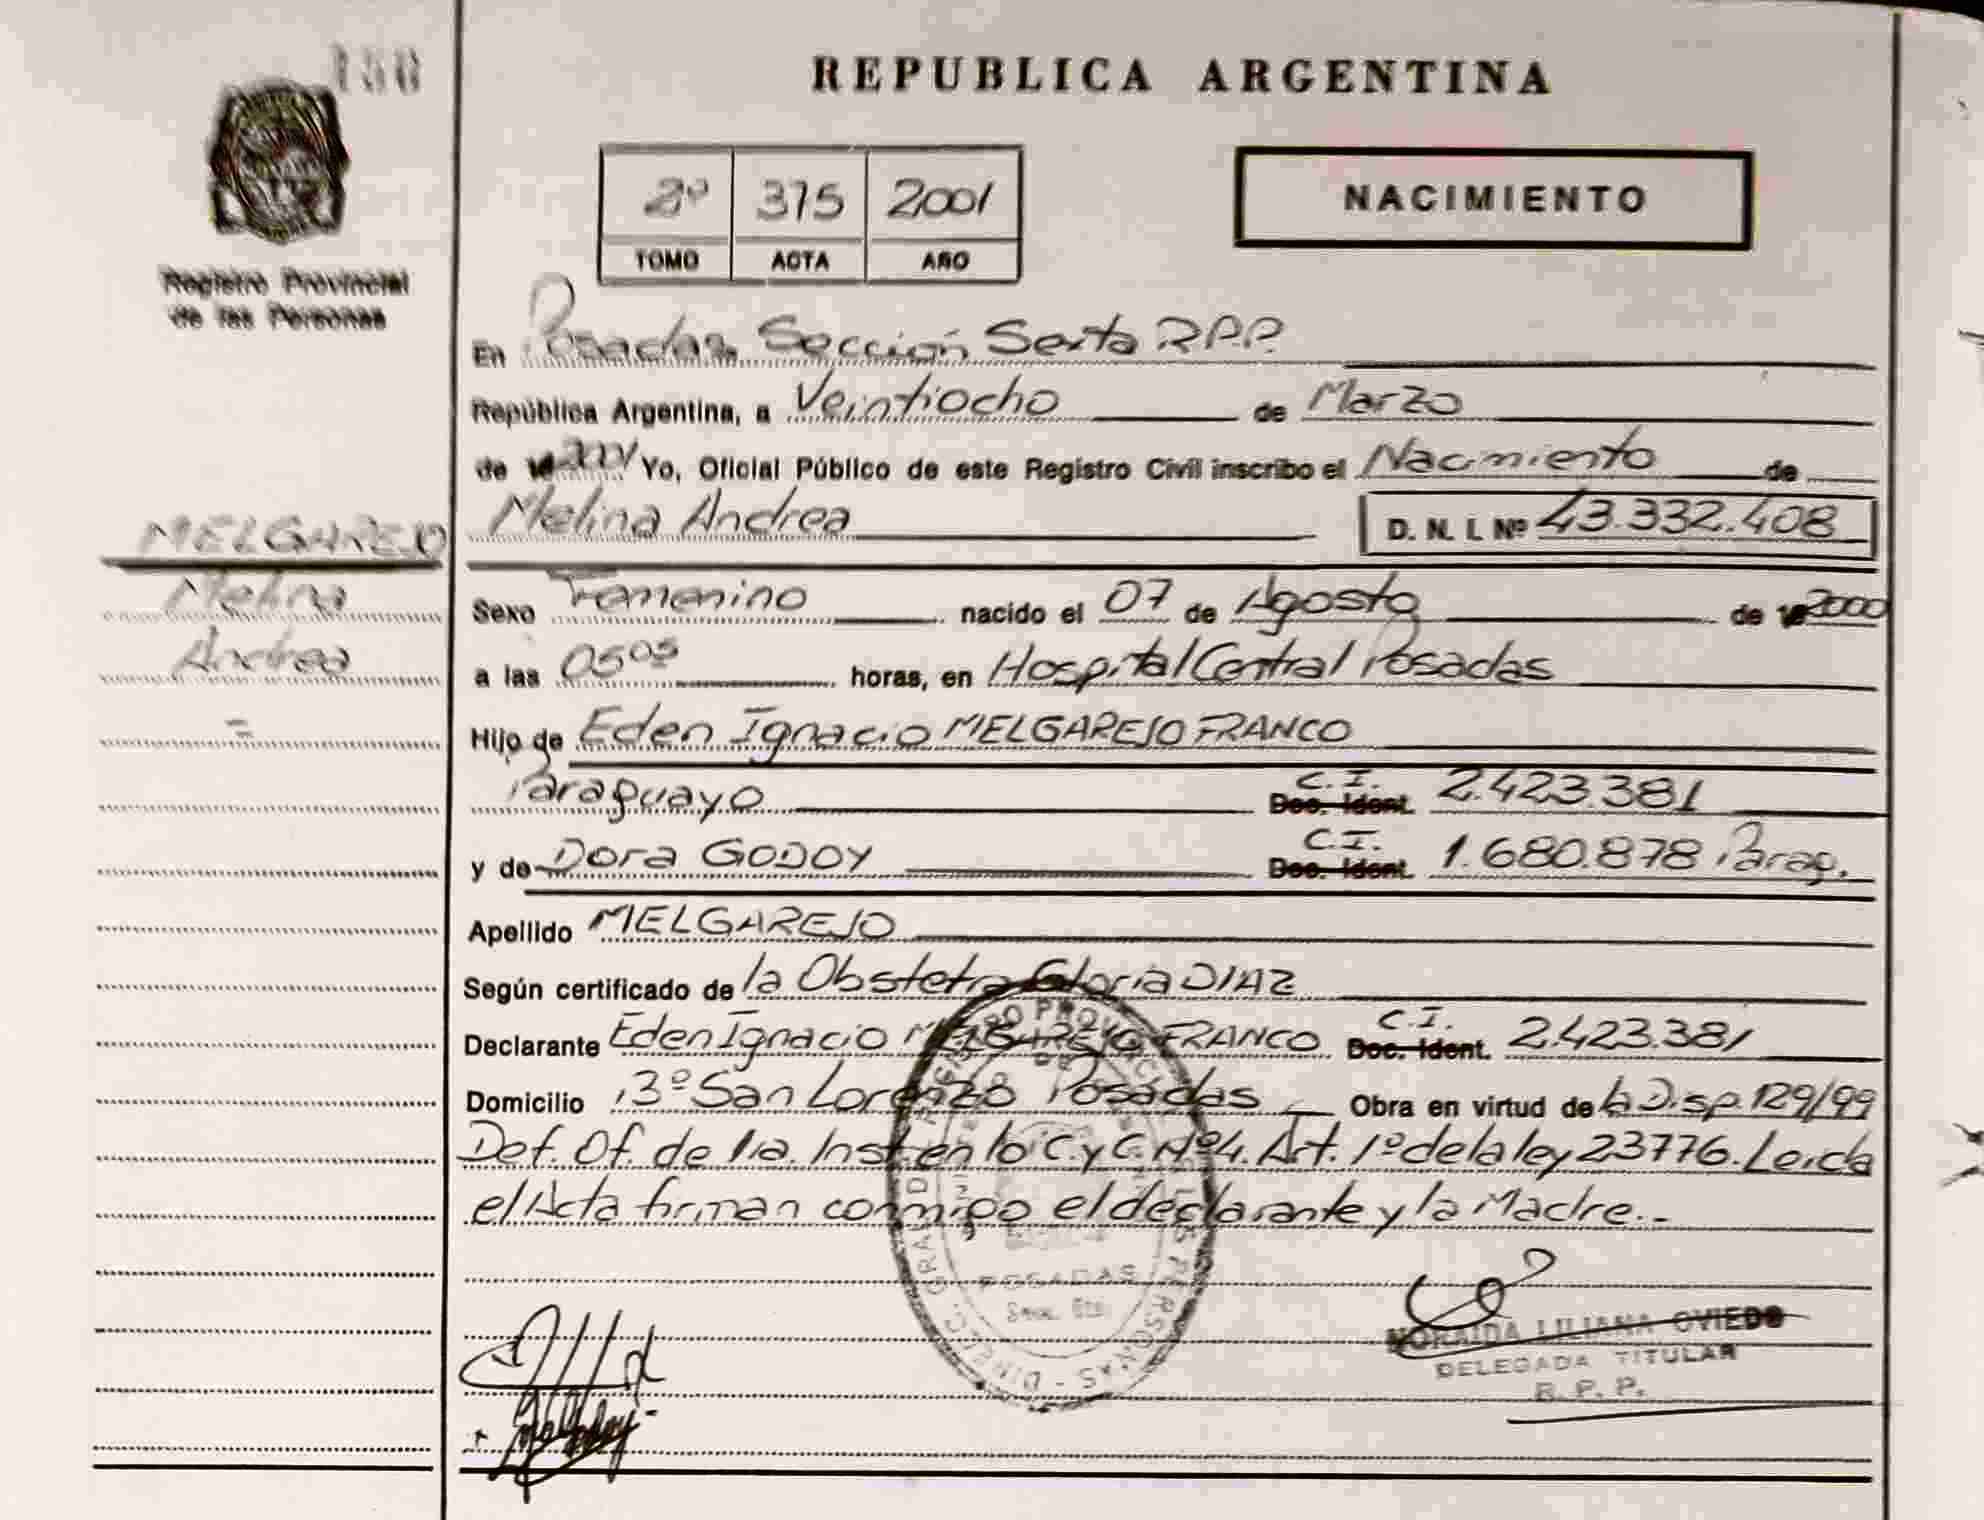 158
REPUBLICA ARGENTINA
2º 375 2001
TOMO ACTA AÑO
NACIMIENTO
Registro Provincial
de las Personas
En Posadas Sección Sexta R.P.P.
República Argentina, a Veintiocho de Marzo
de 2001 Yo, Oficial Público de este Registro Civil inscribo el Nacimiento de
Melina Andrea D. N. I. Nº 43.332.408
MELGAREJO
Melina
Andrea
=
Sexo Femenino nacido el 07 de Agosto de 2000
a las 05⁰⁵ horas, en Hospital Central Posadas
Hijo de Eden Ignacio MELGAREJO FRANCO
Paraguayo C.I. Doc. Ident. 2.423.381
y de Dora GODOY C.I. Doc. Ident. 1.680.878 Parag.
Apellido MELGAREJO
Según certificado de la Obstetra Gloria DIAZ
Declarante Eden Ignacio MELGAREJO FRANCO C.I. Doc. Ident. 2.423.381
Domicilio Bº San Lorenzo Posadas Obra en virtud de la Disp. 129/99
Def. Of. de 1ra. Inst en lo C. y C. Nº4. Art. 1º de la ley 23776. Leida
el Acta firman conmigo el declarante y la Madre.-
DIRECC. GRAL. DEL REGISTRO PROVINCIAL DE LAS PERSONAS
POSADAS
NORAIDA LILIANA OVIEDO
DELEGADA TITULAR
R. P. P.